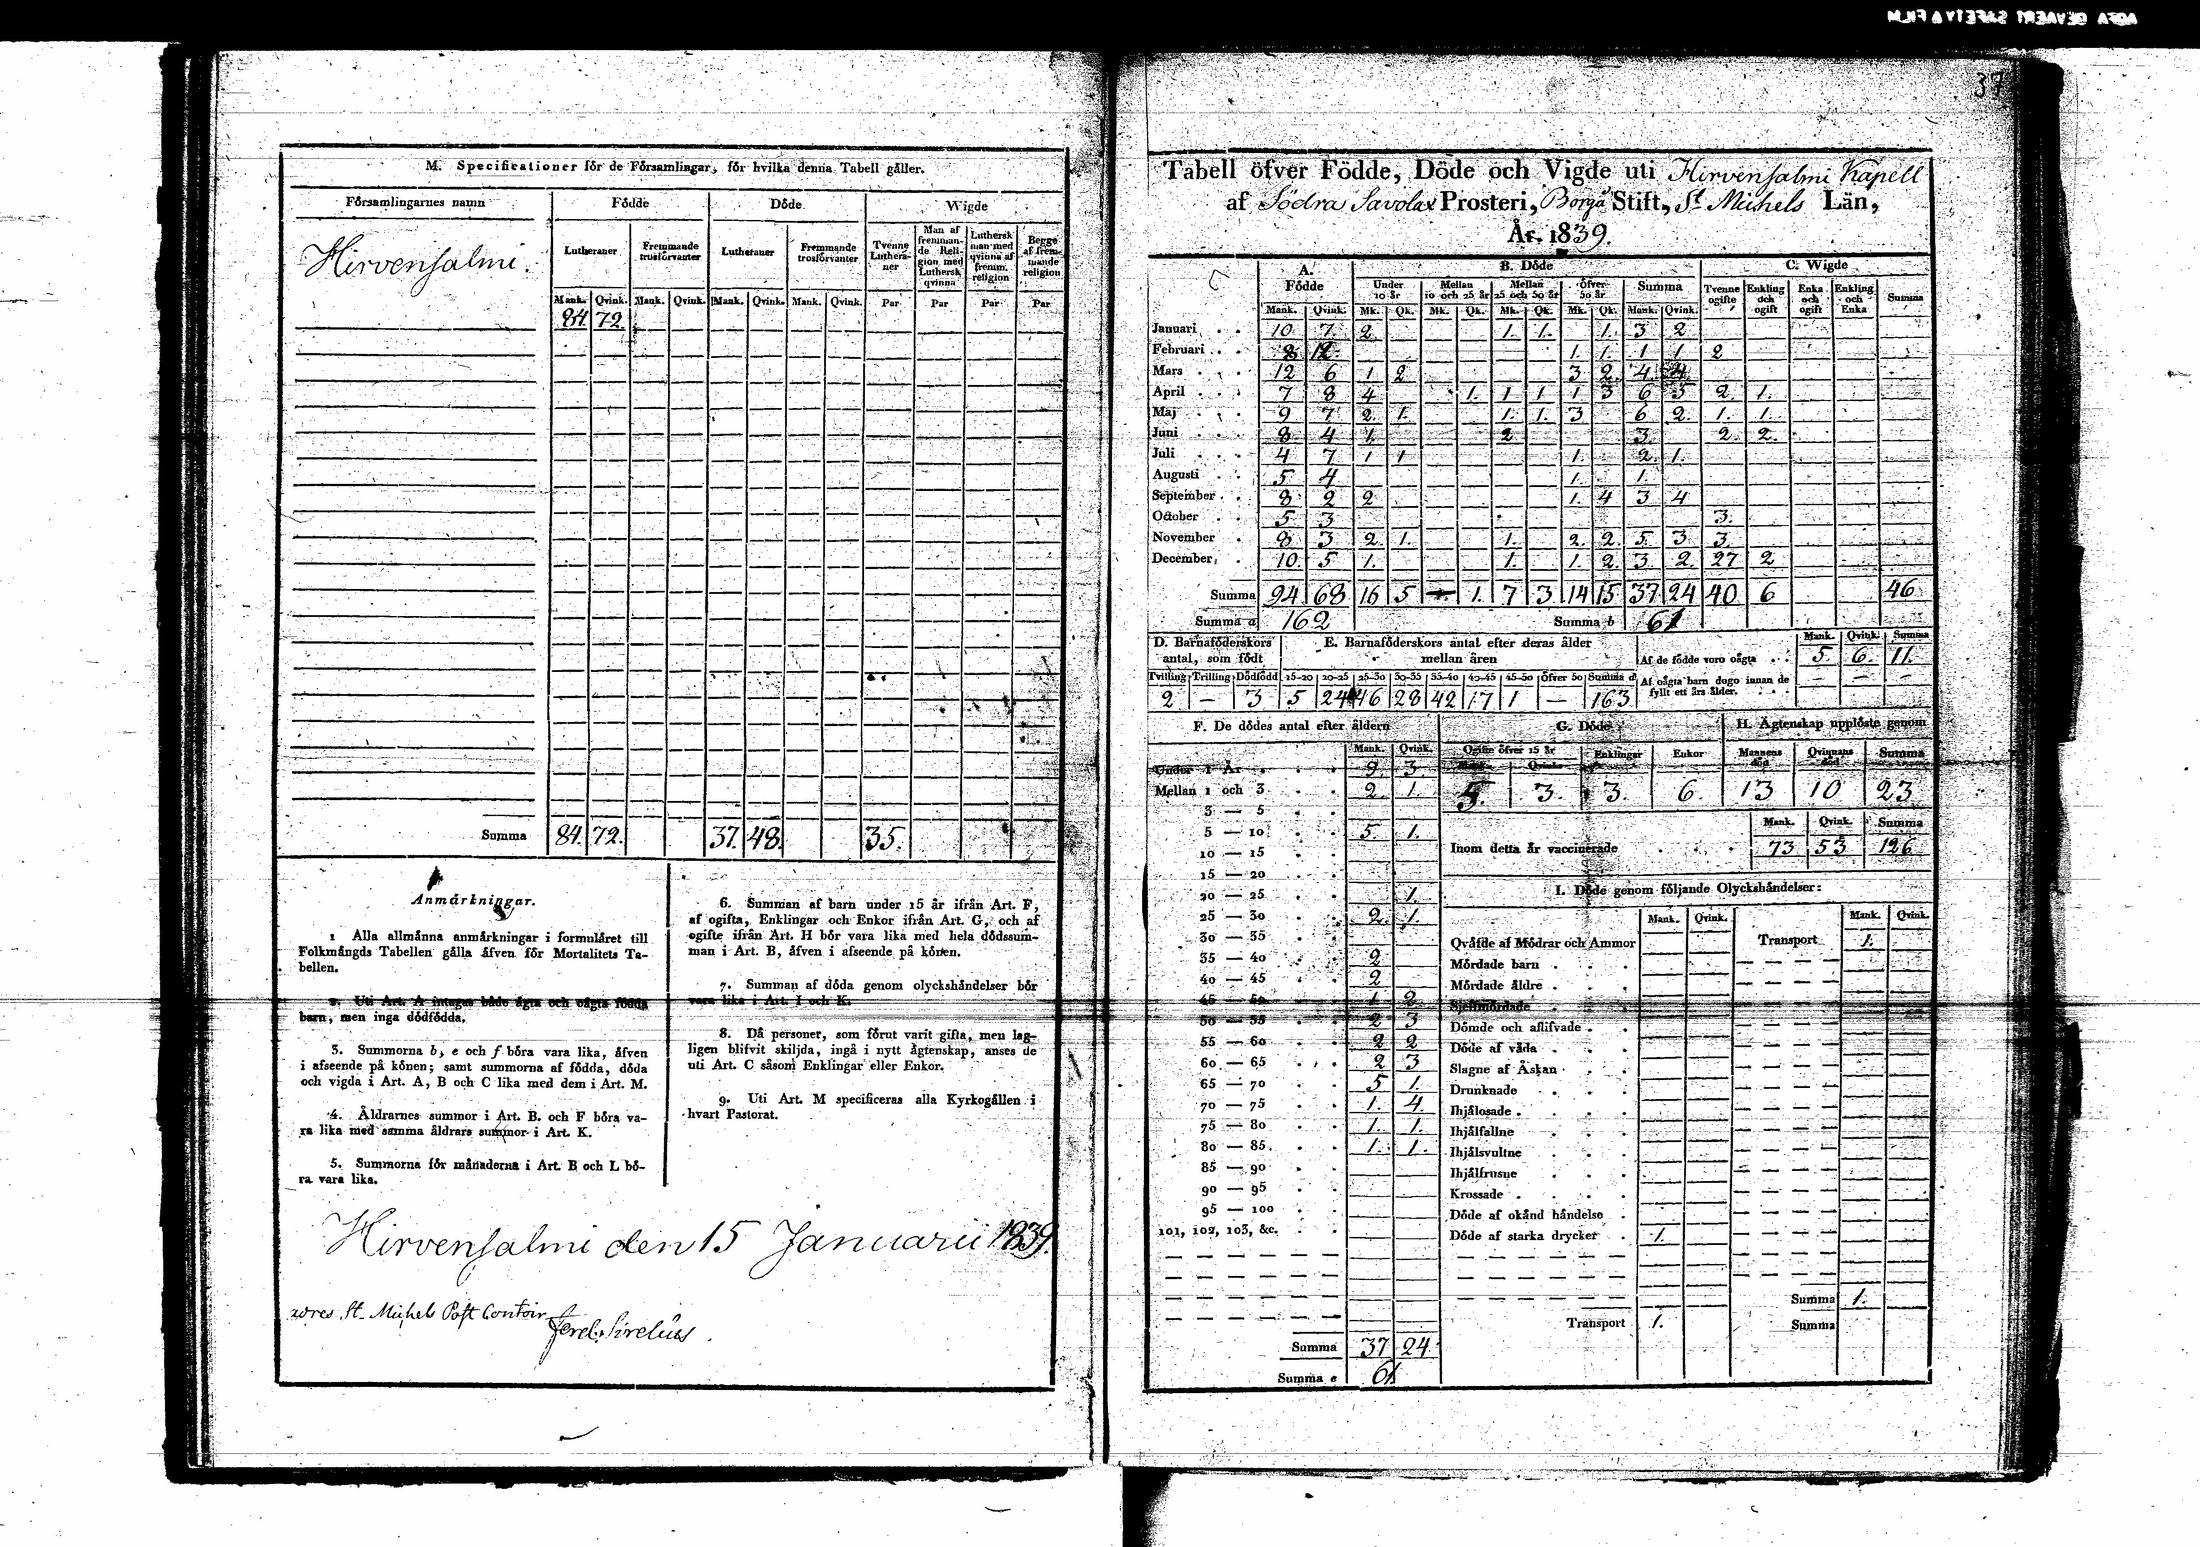 AGFA GEVAERT SAFETY FILM
37
M. Specificationer för de Församlingar, för hvilka denna Tabell gäller.
Församlingarnes namn Födde Döde Wigde
Lutheraner Fremmande trosförvanter Lutheraner Fremmande trosförvanter Tvenne Lutheraner Man af fremmande Religion med Luthersk qvinna Luthersk man med qvinna af fremm. religion Begge af fremmande religion
Mank. Qvink. Mank. Qvink. Mank. Qvink. Mank. Qvink. Par Par Par Par
Hirvensalmi. 84. 72.
Summa 84. 72. 37. 48. 35.
Anmärkningar.
1 Alla allmänna anmärkningar i formuläret till
Folkmängds Tabellen gälla äfven för Mortalitets Ta-
bellen.
2. Uti Art. A intagas både ägta och oägta födda
barn, men inga dödfödda.
3. Summorna b, e och f böra vara lika, äfven
i afseende på könen; samt summorna af födda, döda
och vigda i Art. A, B och C lika med dem i Art. M.
4. Åldrarnes summor i Art. B. och F böra va-
ra lika med samma åldrars summor i Art. K.
5. Summorna för månaderna i Art. B och L bö-
ra vara lika.
6. Summan af barn under 15 år ifrån Art. F,
af ogifta, Enklingar och Enkor ifrån Art. G, och af
ogifte ifrån Art. H bör vara lika med hela dödssum-
man i Art. B, äfven i afseende på könen.
7. Summan af döda genom olyckshändelser bör
vara lika i Art. I och K.
8. Då personer, som förut varit gifta, men lag-
ligen blifvit skiljda, ingå i nytt ägtenskap, anses de
uti Art. C såsom Enklingar eller Enkor.
9. Uti Art. M specificeras alla Kyrkogällen i
hvart Pastorat.
Hirvensalmi den 15 Januarii 1839.
adres St. Michels Post Contoir
Sirelius
Tabell öfver Födde, Döde och Vigde uti Hirvensalmi Kapell
af Södra Savolax Prosteri, Borgå Stift, St. Michels Län,
År 1839.
A. Födde B. Döde C. Wigde
Under 10 år Mellan 10 och 25 år Mellan 25 och 50 år Öfver 50 år Summa Tvenne ogifte Enkling och ogift Enka och ogift Enkling och Enka Summa
Mank. Qvink. Mk. Qk. Mk. Qk. Mk. Qk. Mk. Qk. Mank. Qvink.
Januari 10 7 2 1. 1. 1. 3 2
Februari 8 12 1. 1. 1 1 2
Mars 12 6 1 2 3 2 4 4
April 7 8 4 1. 1 1 1 3 6 5 2. 1.
Maj 9 7 2 1. 1. 1. 3 6 2. 1. 1.
Juni 8 4 1. 2 3. 2. 2.
Juli 4 7 1 1 1. 2. 1.
Augusti 5 4 1. 1.
September 8 2 2 1. 4 3 4
October 5 3 3.
November 8 3 2. 1. 1. 2. 2. 5. 3 3.
December 10. 5 1. 1. 1. 2. 3. 2. 27 2
Summa 94 68 16 5 — 1. 7 3 14 15 37 24 40 6 46
Summa a 162 Summa b 61
D. Barnaföderskors antal, som födt
Tvilling Trilling Dödfödd
2 — 3
E. Barnaföderskors antal efter deras ålder mellan åren
15-20 20-25 25-30 30-35 35-40 40-45 45-50 Öfver 50 Summa d
5 24 46 28 42 17 1 — 163
Mank. Qvink. Summa
Af de födde voro oägta 5. 6. 11.
Af oägta barn dogo innan de fyllt ett års ålder. — — —
F. De dödes antal efter åldern
Mank. Qvink.
Under 1 År 9 3
Mellan 1 och 3 2. 1.
3 — 5
5 — 10 5. 1.
10 — 15
15 — 20
20 — 25 1.
25 — 30 2. 1.
30 — 35
35 — 40 2
40 — 45 2
45 — 50 1 2
50 — 55 2 3
55 — 60 2 2
60 — 65 2 3
65 — 70 5 1.
70 — 75 1. 4.
75 — 80 1. 1.
80 — 85 1. 1.
85 — 90
90 — 95
95 — 100
101, 102, 103, &c.
Summa 37 24
Summa e 61.
G. Döde
Ogifte öfver 15 år Enklingar Enkor
Mank. Qvink.
5. 3. 3. 6.
H. Ägtenskap upplöste genom
Mannens död Qvinnans död Summa
13 10 23
Mank. Qvink. Summa
Inom detta år vaccinerade 73 53 126
I. Döde genom följande Olyckshändelser:
Mank. Qvink. Mank. Qvink.
Qväfde af Mödrar och Ammor Transport 1.
Mördade barn
Mördade äldre
Sjelfmördade
Dömde och aflifvade
Döde af våda
Slagne af Åskan
Drunknade
Ihjälosade
Ihjälfallne
Ihjälsvultne
Ihjälfrusne
Krossade
Döde af okänd händelse
Döde af starka drycker 1.
Summa 1.
Transport 1. Summa